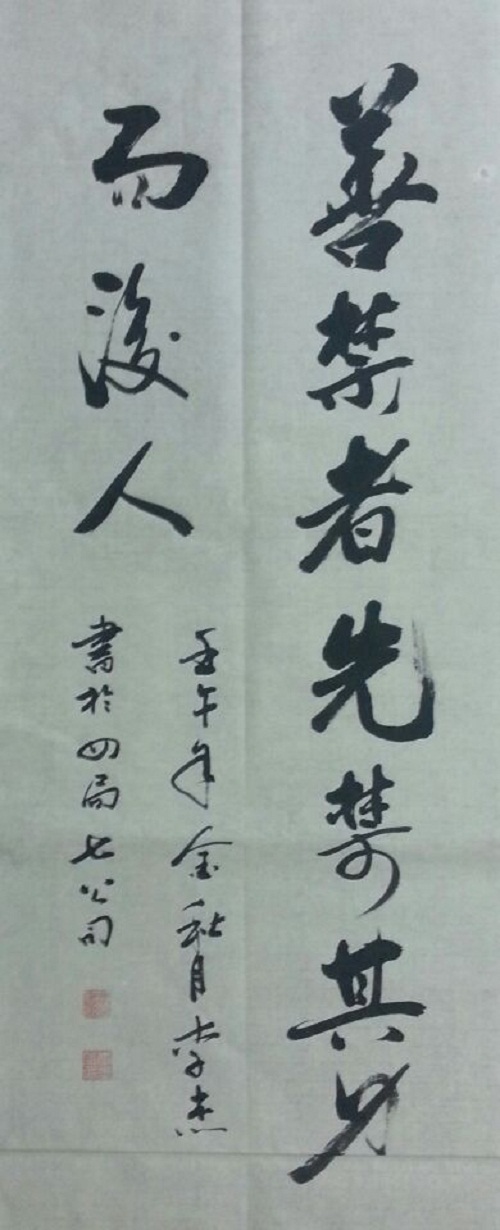 善禁者先禁其身
而後人
壬午年金秋月李杰
書於四局七公司